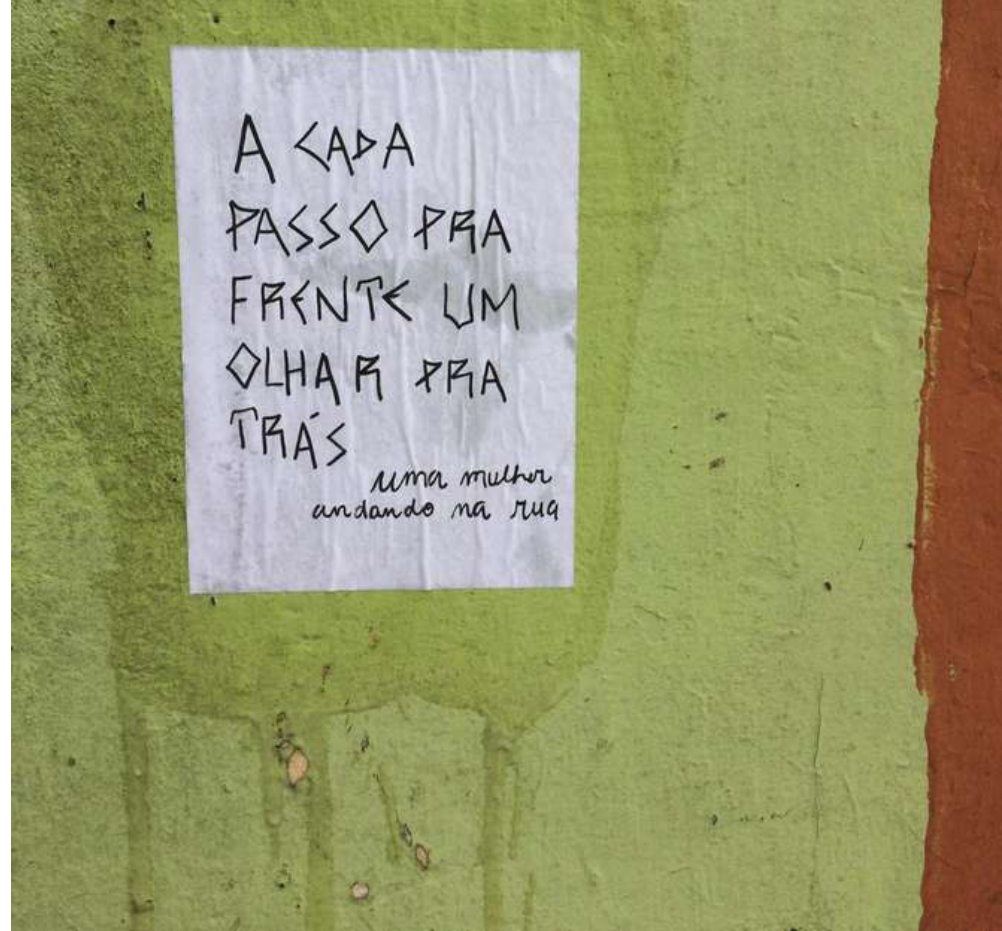 A CADA
PASSO PRA
FRENTE UM
OLHAR PRA
TRÁS
uma mulher
andando na rua